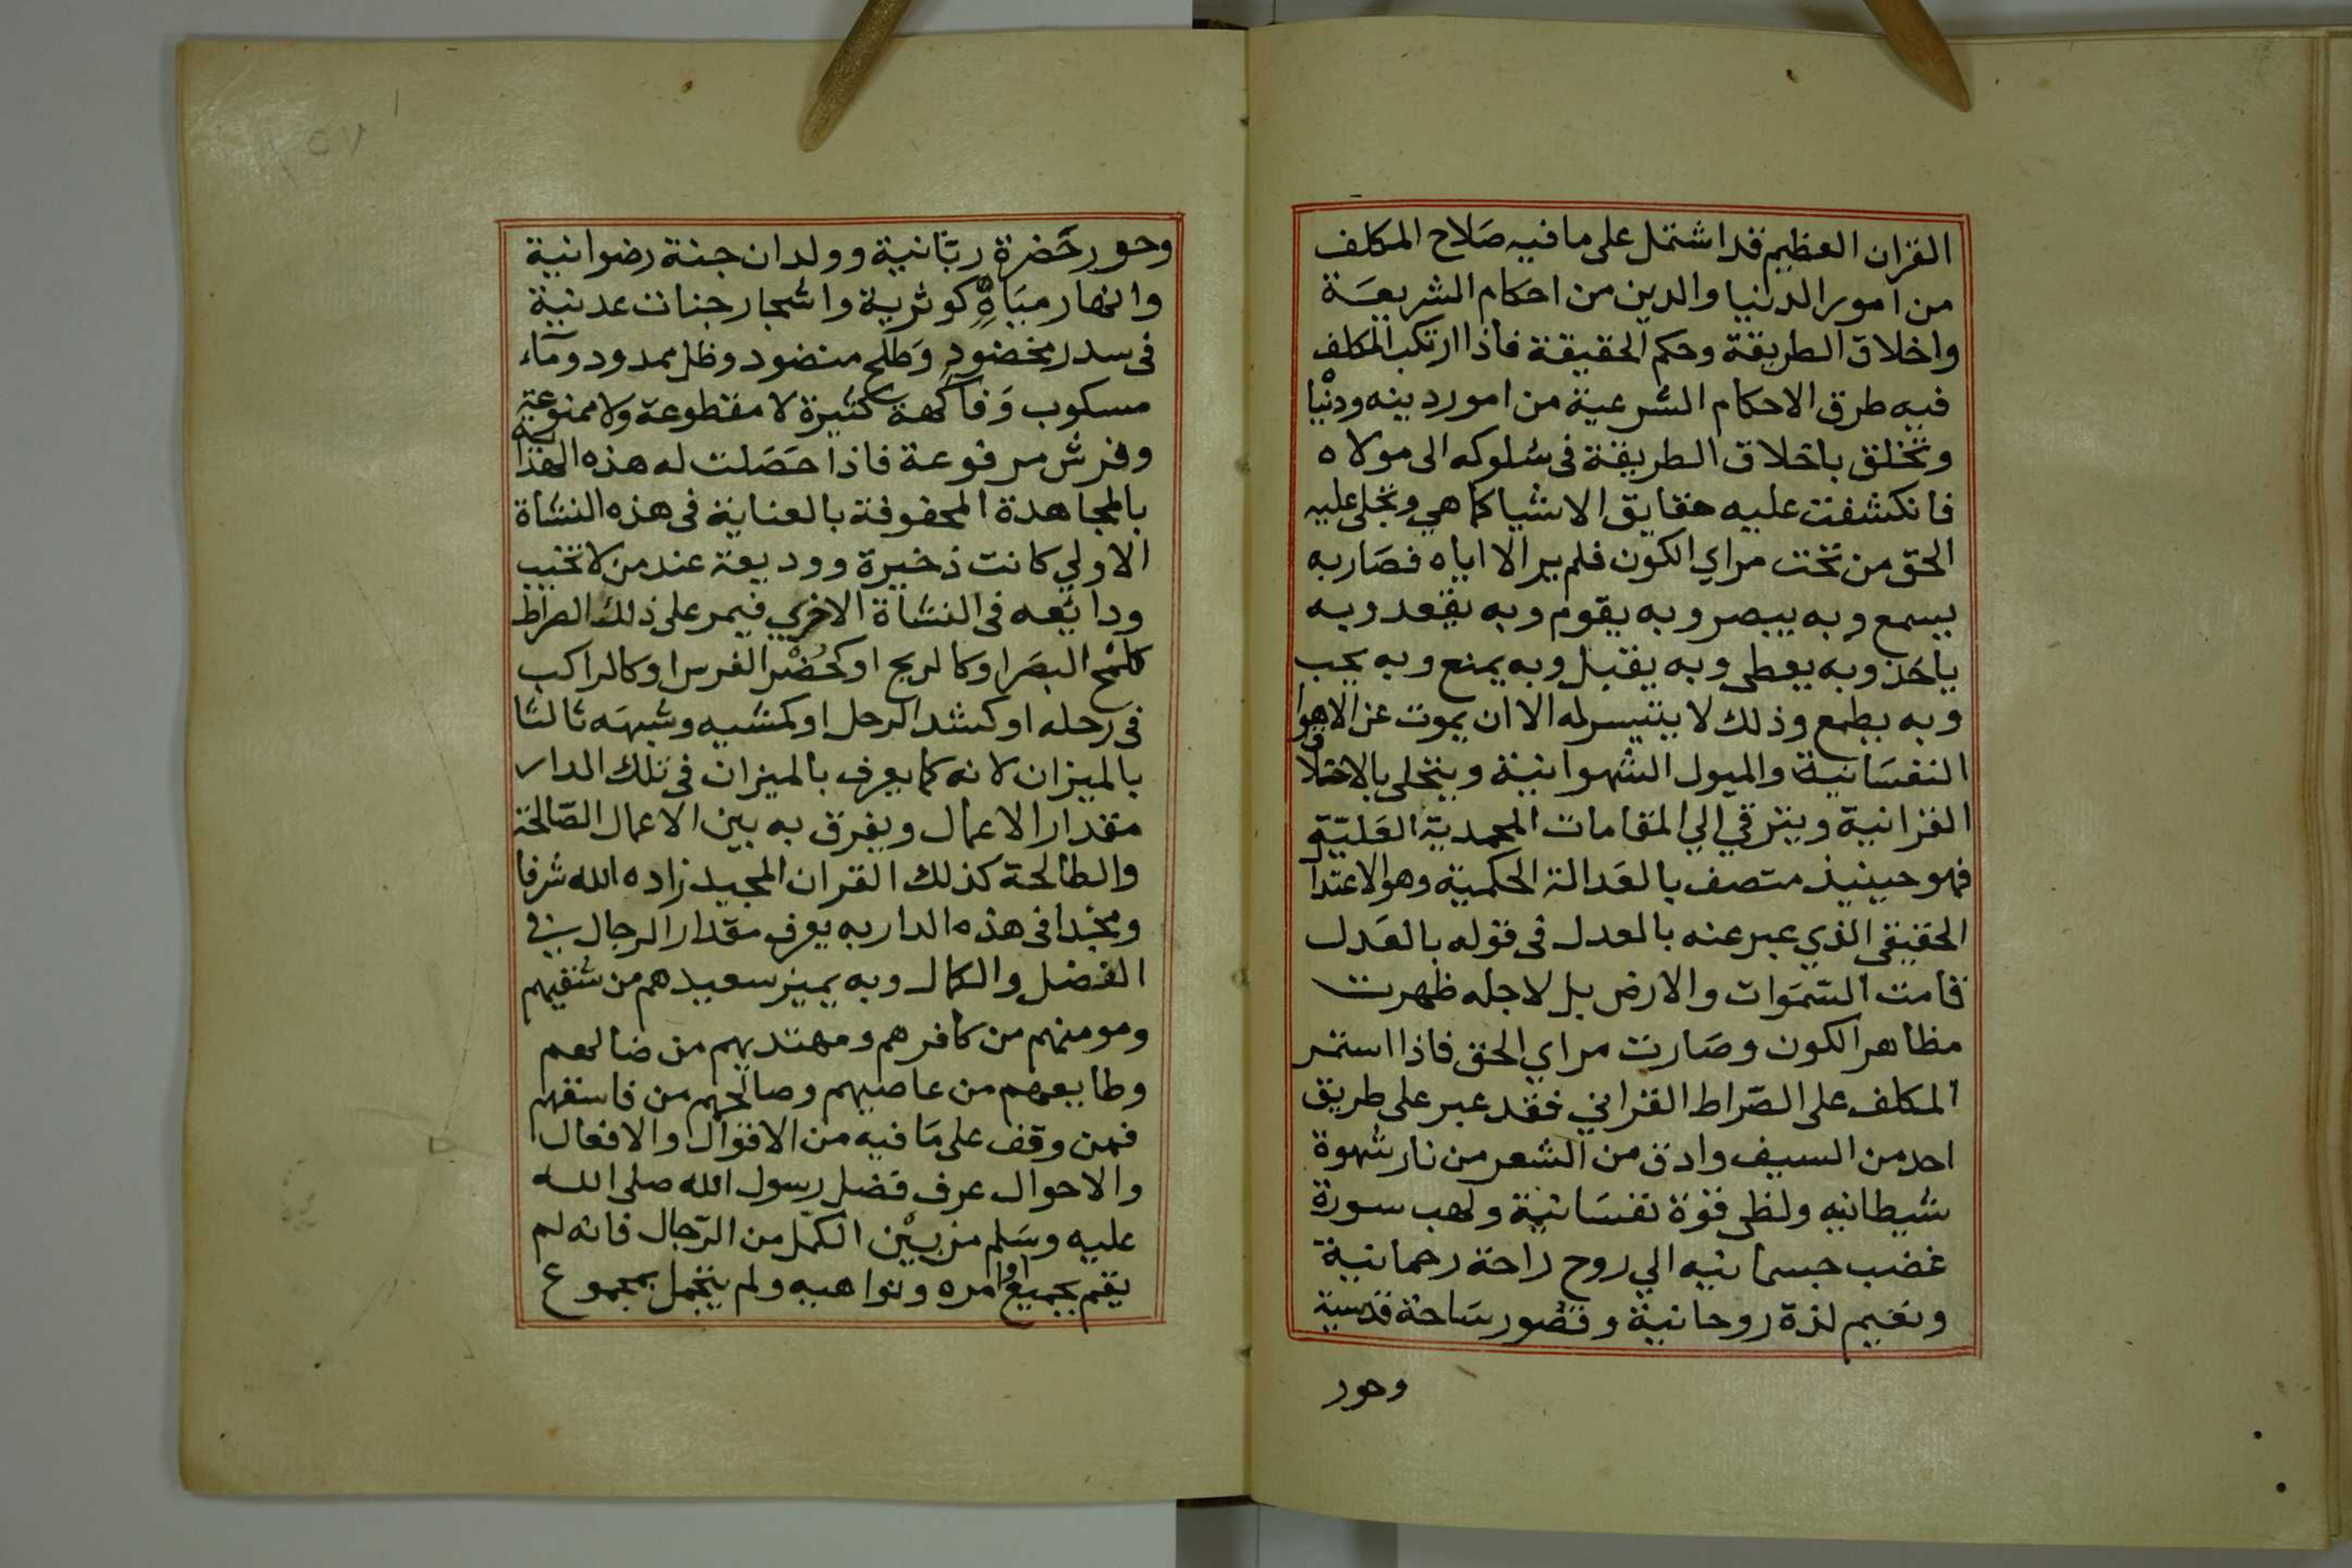 القران العظيم قد اشتمل على ما فيه صَلاح المكلف
من امور الدنيا والدين من احكام الشريعَة
واخلاق الطريقة وحكم الحقيقة فاذا ارتكب المكلف
فيه طرق الاحكام الشرعية من امور دينه ودنْيا
وتخلق باخلاق الطريقة فى سُلوكه الى مولاه
فانكشفت عليه حقايق الاشيا كما هي وتجلى عليه
الحق من تحت مراي الكون فلم ير الا اياه فصَار به
يسمع وبه يبصر وبه يقوم وبه يقعد وبه
ياخذ وبه يعطى وبه يقبل وبه يمنع وبه يجب
وبه يطمع وذلك لا يتيسر له الا ان يموت عن الاهوا
النفسَانية والميول الشهوانية ويتحلى بالاخلاق
القرانية ويترقي الي المقامات المحمدية العَليّة
فهو حينيذ متصف بالعَدالة الحكمية وهو الاعتدا
الحقيقى الذي عبر عنه بالعدل فى قوله بالعَدل
قامت السّمَوات والارض بل لاجله ظهرت
مظاهر الكون وصَارت مراي الحق فاذا استمر
المكلف على الصّراط القراني فقد عبر على طريق
احد من السيف وادق من الشعر من نار شهوة
شيطانيه ولظى قوّة نفسَانية ولهب سورة
غضب جسمانيه الي روح راحة رحمانية
ونعيم لذة روحانية وقصُور سَاحة قدسية
وحور
وحور حَضرة ربّانية وولدان جنة رضوانية
وانهار ميَاهٍ كوثرية واشجار جنات عدنية
فى سدر مخضودٍ وَطلح منضود وظل ممدود ومآء
مسكوب وَفاكهة كثيرة لا مقطوعة ولا ممنوعة
وفرش مرفوعة فاذا حَصَلت له هذه
بالمجاهدة المحفوفة بالعناية فى هذه النشاة
الاولي كانت ذخيرة ووديعة عند من لا تخيب
ودايَعه فى النشاة الاخري فيمر على ذلك الصراط
كلمْح البصَر او كالريح او كحُضْر الفرس او كالراكب
فى رحله او كشد الرجل او كمشيه وشبهَه ثالثا
بالميزان لانه كما يعرف بالميزان فى تلك الدار
مقدار الاعمال ويفرق به بين الاعمال الصّالحة
والطالحة كذلك القران المجيد زاده الله شرفا
ومجْدا فى هذه الدار به يعرف مقدار الرجال في
الفضل والكمال وبه يميز سعيدهم من شقيهم
ومومنهم من كافرهم ومهتديهم من ضالهم
وطايعهم من عاصيهم وصالحهم من فاسقهم
فمن وقف على مَا فيه من الاقوال والافعال
والاحوال عرف فضل رسول الله صلى الله
عليه وسَلم من بيْن الكمّل من الرّجال فانه لم
يقم بجميع اوامره ونواهيه ولم يتجمل بمجموع